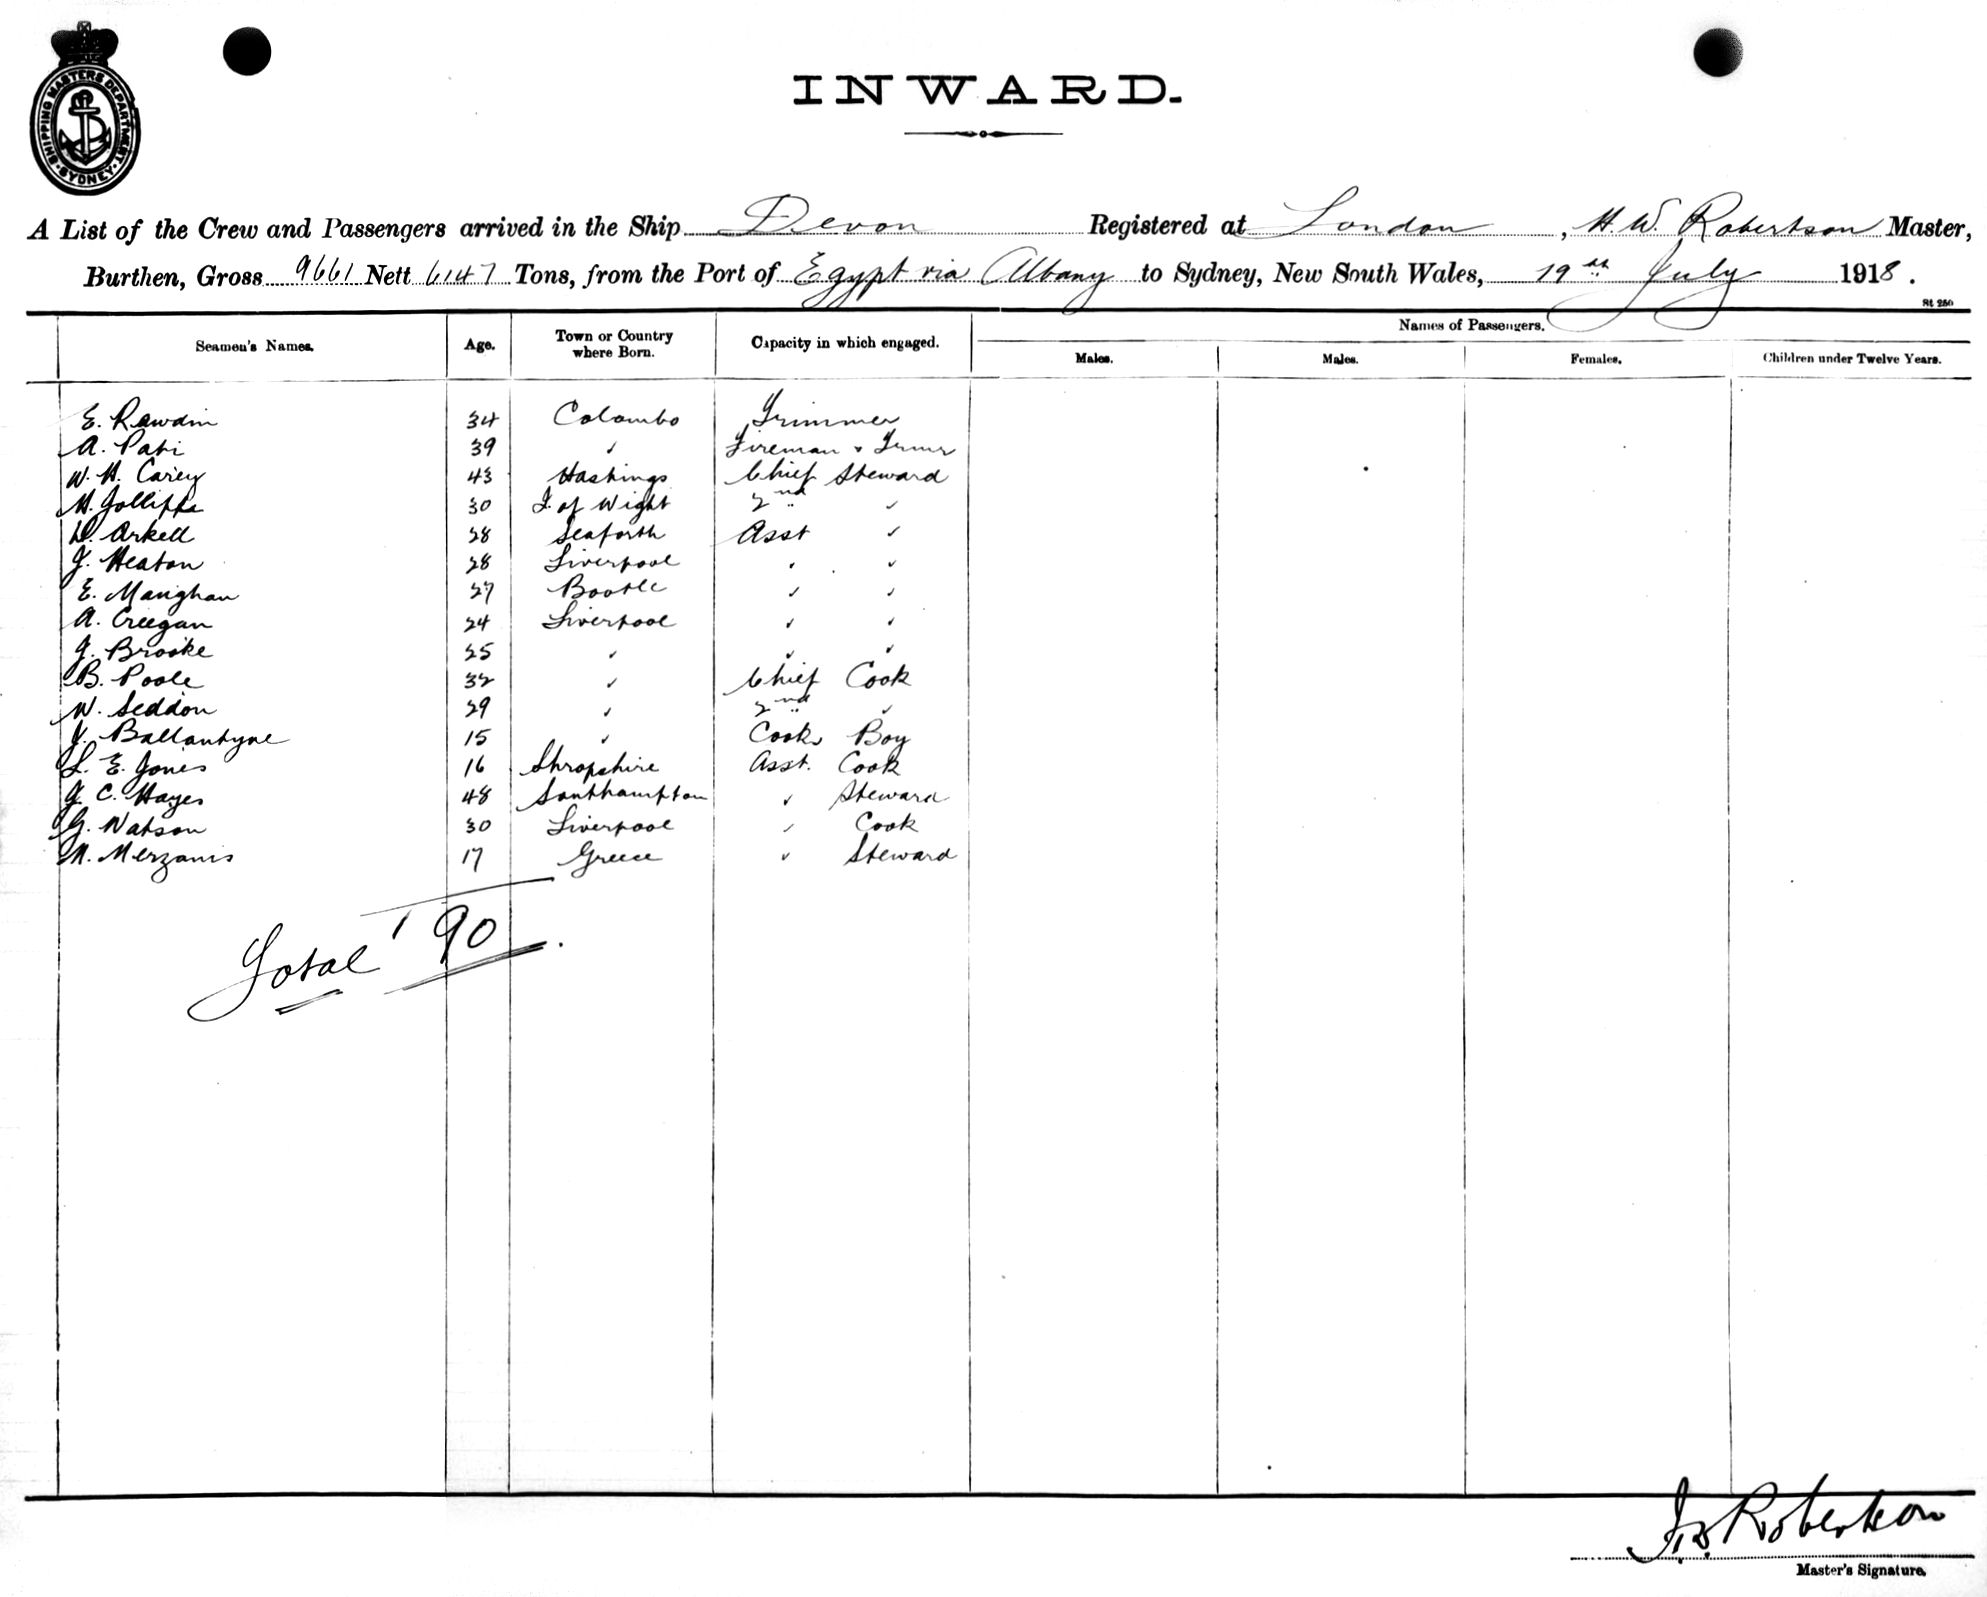 SHIPPING MASTERS DEPARTMENT SYDNEY
INWARD.
A List of the Crew and Passengers arrived in the Ship Devon Registered at London, H. W. Robertson Master,
Burthen, Gross 9661 Nett 6147 Tons, from the Port of Egypt via Albany to Sydney, New South Wales, 19th July 1918.
St 250
Seamen's Names. Age. Town or Country where Born. Capacity in which engaged. Names of Passengers.
Males. Males. Females. Children under Twelve Years.
E. Rawdin 34 Colombo Trimmer
A. Pati 39 " Fireman & Trimr
W. H. Carey 43 Hastings Chief Steward
H. Jolliffe 30 I. of Wight 2nd "
D. Arkell 28 Seaforth Asst "
J. Heaton 28 Liverpool " "
E. Maughan 27 Bootle " "
A. Creegan 24 Liverpool " "
J. Brooke 25 " " "
B. Poole 32 " Chief Cook
W. Seddon 29 " 2nd "
J. Ballantyne 15 " Cooks Boy
L. E. Jones 16 Shropshire Asst. Cook
J. C. Hayes 48 Southampton " Steward
G. Watson 30 Liverpool " Cook
N. Merzanis 17 Greece " Steward
Total 90
Robertson
Master's Signature.